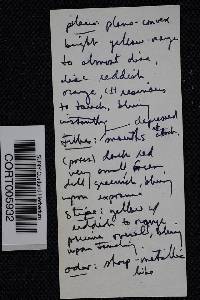 pileus: plano-convex
bright yellow orange
to almost disc,
disc reddish
orange, (+) resinous
to touch, bluing
instantly depressed
tubes: mouths at attach.
(pores) dark red
very small from
dull greenish, bluing
upon exposure
stipe: yellow w/
reddish to orange
pruina overall, bluing
upon handling.
odor: sharp-metallic
like
CORT005932